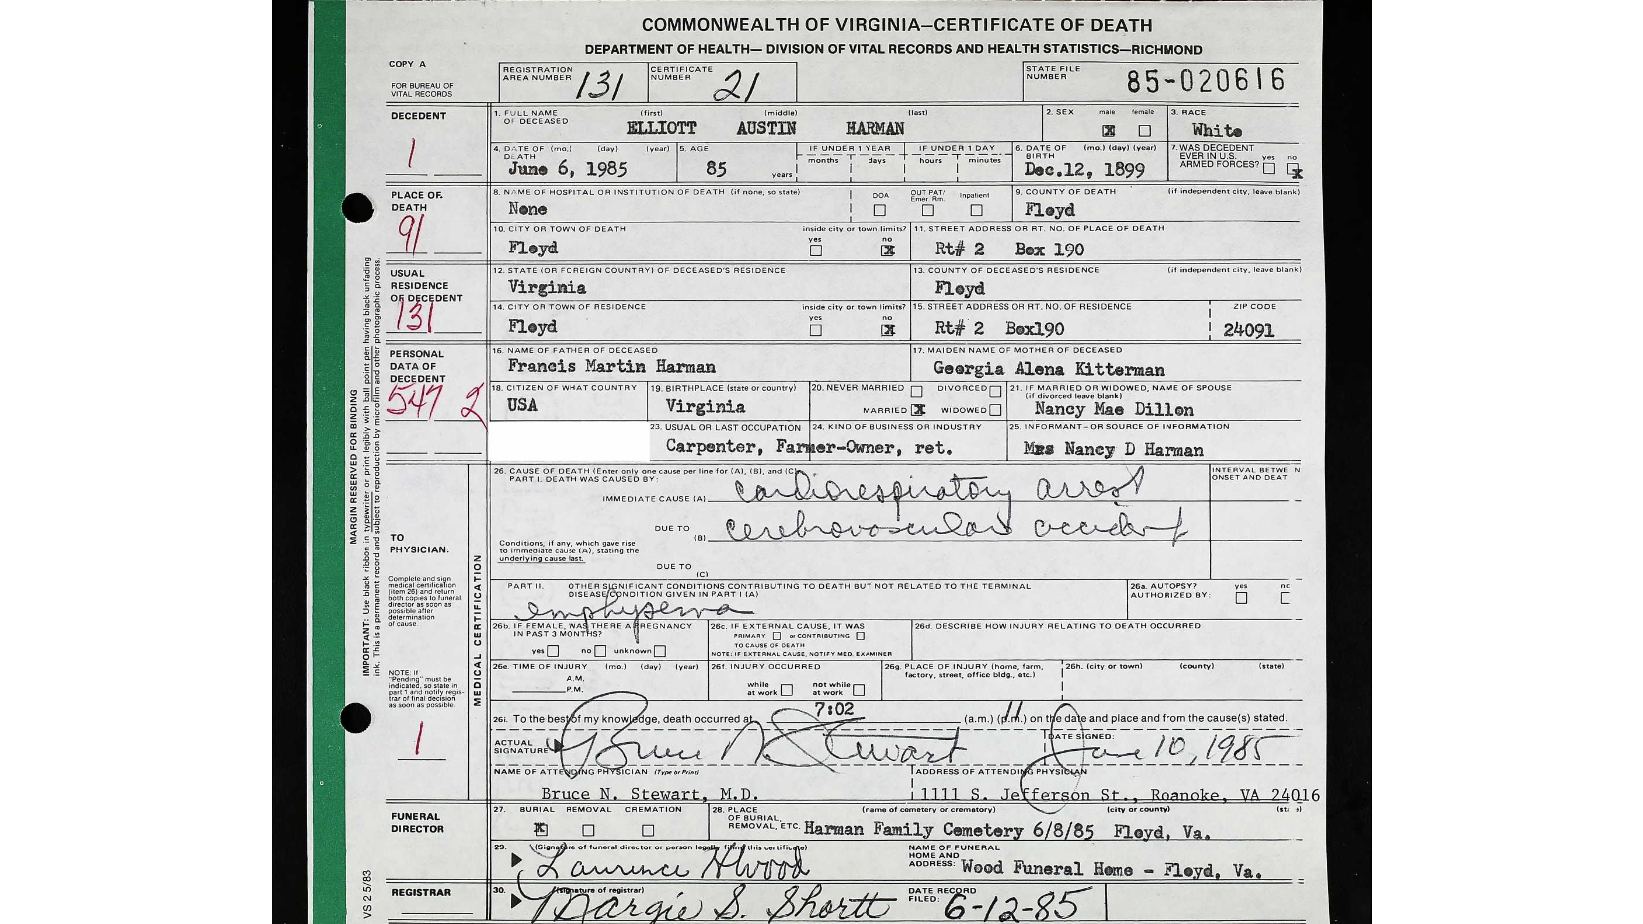 COMMONWEALTH OF VIRGINIA—CERTIFICATE OF DEATH
DEPARTMENT OF HEALTH— DIVISION OF VITAL RECORDS AND HEALTH STATISTICS—RICHMOND
COPY A
FOR BUREAU OF VITAL RECORDS
REGISTRATION AREA NUMBER 131 CERTIFICATE NUMBER 21 STATE FILE NUMBER 85-020616
DECEDENT
1
1. FULL NAME OF DECEASED (first) (middle) (last) 2. SEX male female 3. RACE
ELLIOTT AUSTIN HARMAN X White
4. DATE OF DEATH (mo.) (day) (year) 5. AGE IF UNDER 1 YEAR IF UNDER 1 DAY 6. DATE OF BIRTH (mo.) (day) (year) 7. WAS DECEDENT EVER IN U.S. ARMED FORCES? yes no
months days hours minutes
June 6, 1985 85 years Dec.12, 1899 X
PLACE OF. DEATH
91
8. NAME OF HOSPITAL OR INSTITUTION OF DEATH (if none, so state) DOA OUT PAT/ Emer. Rm. Inpatient 9. COUNTY OF DEATH (if independent city, leave blank)
None Floyd
10. CITY OR TOWN OF DEATH inside city or town limits? yes no 11. STREET ADDRESS OR RT. NO. OF PLACE OF DEATH
Floyd X Rt# 2 Box 190
USUAL RESIDENCE OF DECEDENT
131
12. STATE (OR FOREIGN COUNTRY) OF DECEASED'S RESIDENCE 13. COUNTY OF DECEASED'S RESIDENCE (if independent city, leave blank)
Virginia Floyd
14. CITY OR TOWN OF RESIDENCE inside city or town limits? yes no 15. STREET ADDRESS OR RT. NO. OF RESIDENCE ZIP CODE
Floyd X Rt# 2 Box190 24091
PERSONAL DATA OF DECEDENT
547 2
16. NAME OF FATHER OF DECEASED 17. MAIDEN NAME OF MOTHER OF DECEASED
Francis Martin Harman Georgia Alena Kitterman
18. CITIZEN OF WHAT COUNTRY 19. BIRTHPLACE (state or country) 20. NEVER MARRIED DIVORCED 21. IF MARRIED OR WIDOWED, NAME OF SPOUSE (if divorced leave blank)
USA Virginia MARRIED X WIDOWED Nancy Mae Dillon
23. USUAL OR LAST OCCUPATION 24. KIND OF BUSINESS OR INDUSTRY 25. INFORMANT - OR SOURCE OF INFORMATION
Carpenter, Farmer-Owner, ret. Mrs Nancy D Harman
MARGIN RESERVED FOR BINDING
IMPORTANT: Use black ribbon in typewriter or print legibly with ball point pen having black unfading
ink. This is a permanent record and subject to reproduction by microfilm and other photographic process.
MEDICAL CERTIFICATION
TO PHYSICIAN.
Complete and sign medical certification (item 26) and return both copies to funeral director as soon as possible after determination of cause.
NOTE: If "Pending" must be indicated, so state in part 1 and notify registrar of final decision as soon as possible.
1
26. CAUSE OF DEATH (Enter only one cause per line for (A), (B), and (C)) INTERVAL BETWE N ONSET AND DEAT
PART I. DEATH WAS CAUSED BY:
IMMEDIATE CAUSE (A) cardiorespiratory arrest
DUE TO (B) cerebrovascular accident
Conditions, if any, which gave rise to immediate cause (A), stating the underlying cause last.
DUE TO (C)
PART II. OTHER SIGNIFICANT CONDITIONS CONTRIBUTING TO DEATH BUT NOT RELATED TO THE TERMINAL DISEASE CONDITION GIVEN IN PART I (A) 26a. AUTOPSY? AUTHORIZED BY: yes no
emphysema
26b. IF FEMALE, WAS THERE A PREGNANCY IN PAST 3 MONTHS? 26c. IF EXTERNAL CAUSE, IT WAS 26d. DESCRIBE HOW INJURY RELATING TO DEATH OCCURRED
PRIMARY or CONTRIBUTING
TO CAUSE OF DEATH
yes no unknown NOTE: IF EXTERNAL CAUSE, NOTIFY MED. EXAMINER
26e. TIME OF INJURY (mo.) (day) (year) 26f. INJURY OCCURRED 26g. PLACE OF INJURY (home, farm, factory, street, office bldg., etc.) 26h. (city or town) (county) (state)
A.M.
P.M. while at work not while at work
26i. To the best of my knowledge, death occurred at 7:02 (a.m.) (p.m.) on the date and place and from the cause(s) stated.
ACTUAL SIGNATURE Bruce N Stewart DATE SIGNED: June 10, 1985
NAME OF ATTENDING PHYSICIAN (Type or Print) ADDRESS OF ATTENDING PHYSICIAN
Bruce N. Stewart, M.D. 1111 S. Jefferson St., Roanoke, VA 24016
FUNERAL DIRECTOR
27. BURIAL REMOVAL CREMATION 28. PLACE OF BURIAL, REMOVAL, ETC. (name of cemetery or crematory) (city or county)
X Harman Family Cemetery 6/8/85 Floyd, Va.
29. (Signature of funeral director or person legally filing this certificate) NAME OF FUNERAL HOME AND ADDRESS:
Laurence H Wood Wood Funeral Home - Floyd, Va.
REGISTRAR
30. (signature of registrar) DATE RECORD FILED:
Margie S. Shortt 6-12-85
VS 2 5/83